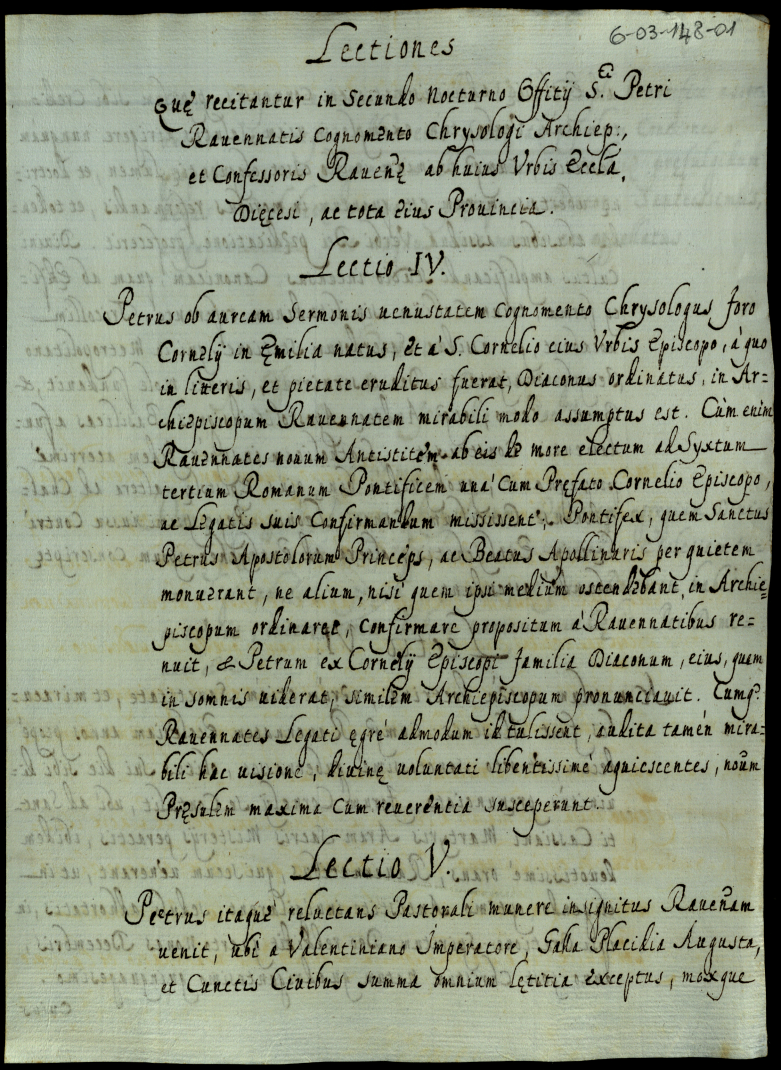 6-03-148-01
Lectiones
Quę recitantur in Secundo Nocturno Offitij S.ti Petri
Rauennatis Cognomento Chrysologi Archiep:,
et Confessoris Rauenę ab huius Vrbis Eccla,
Dięcesi, ac tota eius Prouincia.
Lectio IV.
Petrus ob auream Sermonis uenustatem Cognomento Chrysologus foro
Cornelij in Ęmilia natus, et à S. Cornelio eius Vrbis Episcopo, à quo
in literis, et pietate eruditus fuerat, Diaconus ordinatus, in Ar=
chiepiscopum Rauennatem mirabili modo assumptus est. Cùm enim
Rauennates nouum Antistitem ab eis de more electum ad Syxtum
tertium Romanum Pontificem unà cum Prefato Cornelio Episcopo,
ac Legatis suis Confirmandum missisent; Pontifex, quem Sanctus
Petrus Apostolorum Princeps, ac Beatus Apollinaris per quietem
monuerant, ne alium, nisi quem ipsi medium ostendebant, in Archie=
piscopum ordinaret, Confirmare propositum à Rauennatibus re=
nuit, & Petrum ex Cornelij Episcopi familia Diaconum, eius, quam
in somnis uiderat, similem Archiepiscopum pronunciauit. Cumq:
Rauennates Legati ęgrè admodum id tulissent, audita tamèn mira=
bili hac uisione, diuinę uoluntati libentissimè aquiescentes, noũm
Pręsulem maxima Cum reuerentia susceperunt.
Lectio V.
Petrus itaquè reluctans Pastorali munere insignitus Raueñam
uenit, ubi a Valentiniano Imperatore, Galla Placidia Augusta,
et Cunctis Ciuibus summa omnium lętitia exceptus, moxque